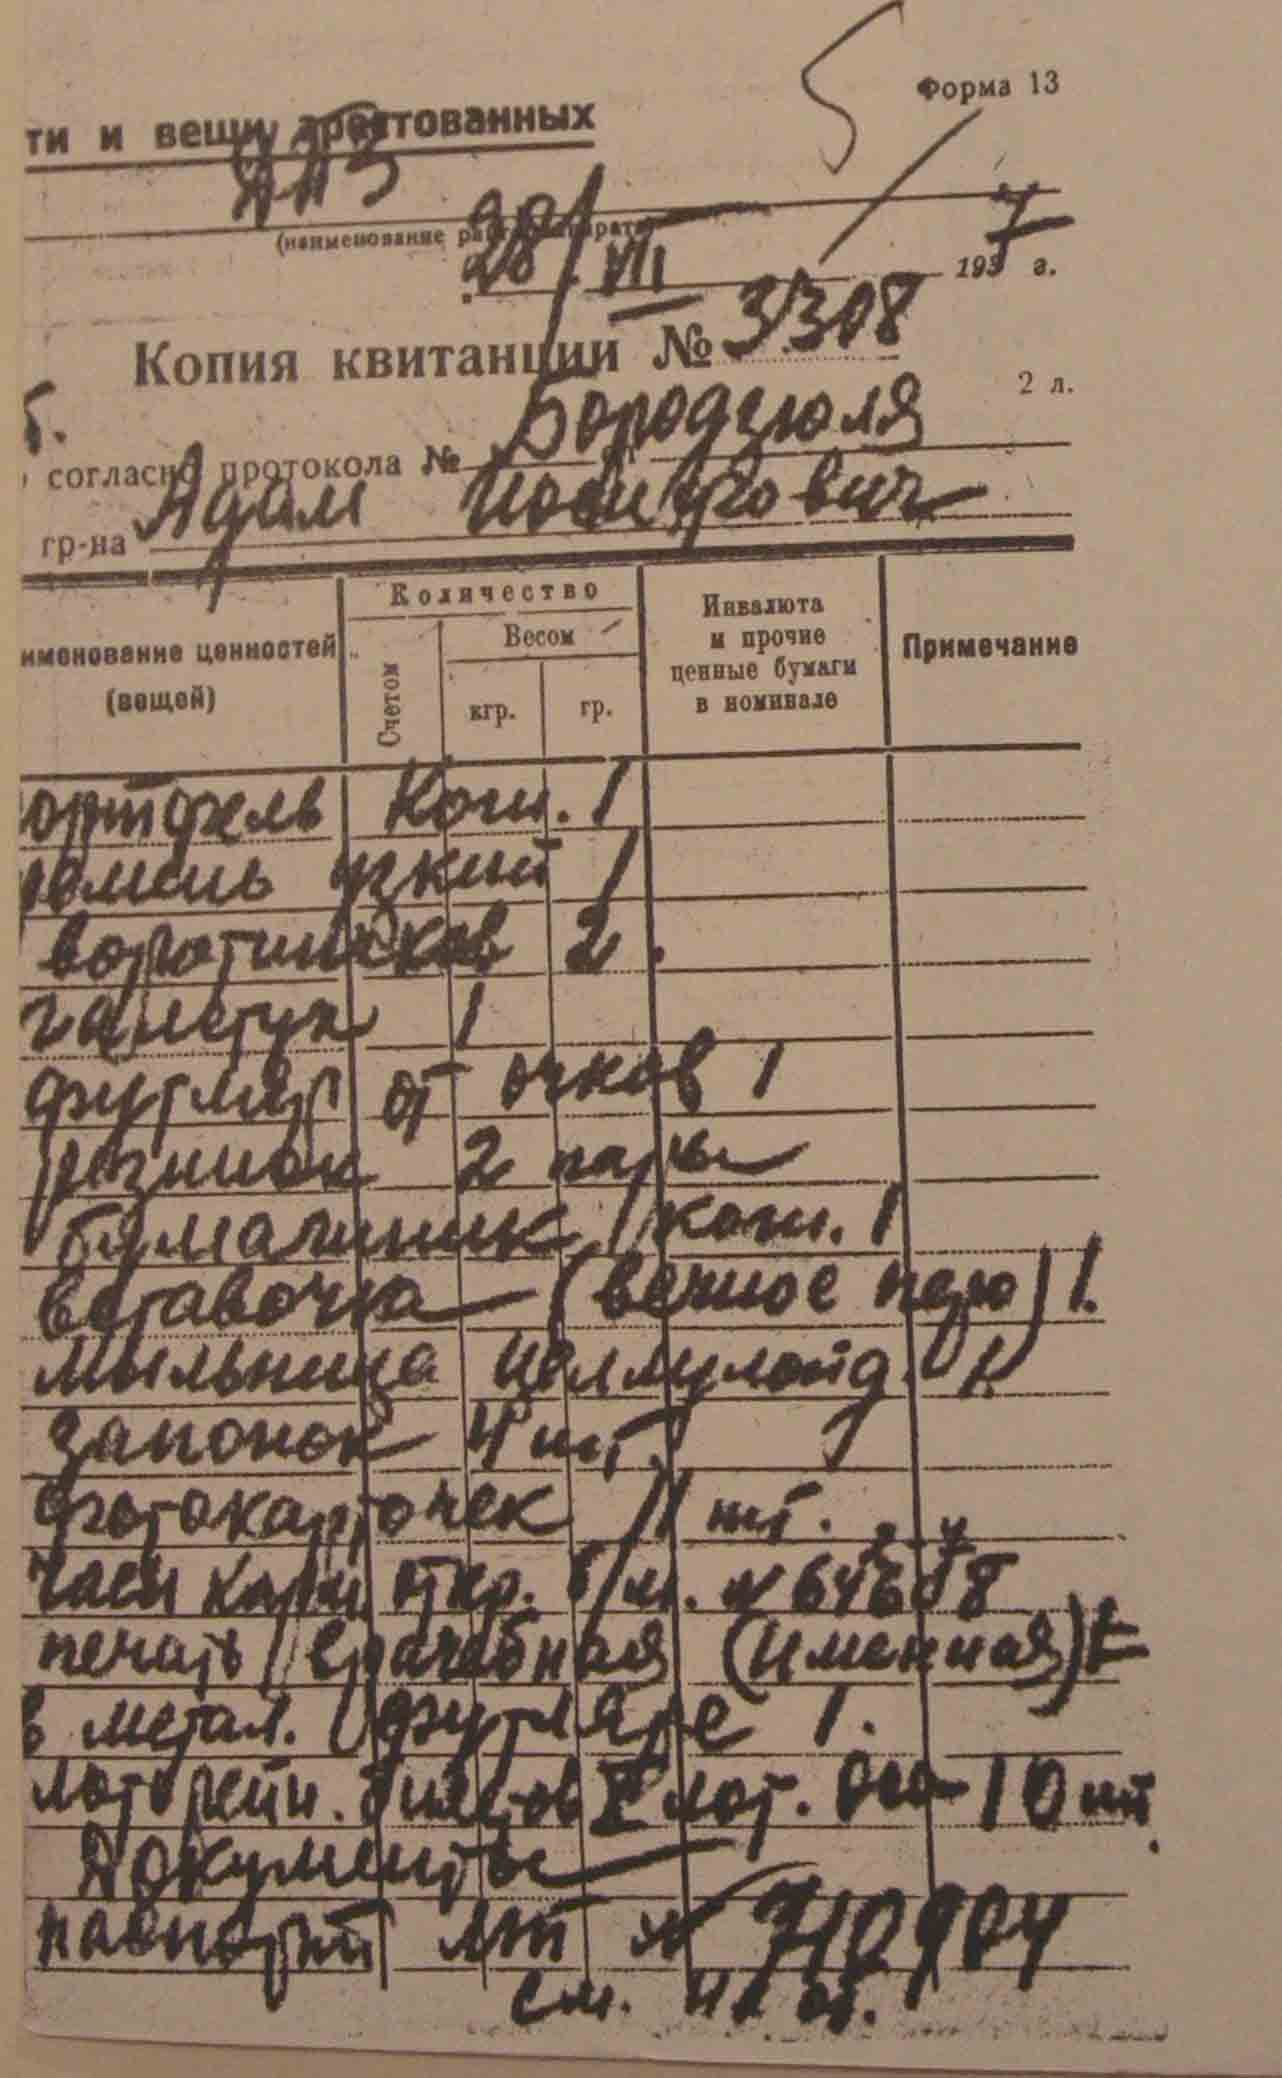 Форма 13
ти и вещи арестованных
ДПЗ
(наименование
28/VII 1937 г.
Копия квитанции № 3308
2 л.
согласно протокола № Бородзюля
гр-на Адам Иосифович
именование ценностей (вещей)
Количество
Счетом
Весом
кгр.
гр.
Инвалюта и прочие ценные бумаги в номинале
Примечание
ортфель кож. 1
ремень узкий 1
воротничков 2.
галстук 1
футляр от очков 1
резинок 2 пары
бумажник кож. 1
вставочка (вечное перо) 1.
мыльница целлулоид. 1.
запонок 4 шт.
фотокарточек 11 шт.
часы карм. откр. б/м. №
печать врачебная (именная)
в метал. футляре 1.
лотерейн. билетов X лот. Осо-10 шт.
Документы
паспорт ЛТ № 710904
см. на об.